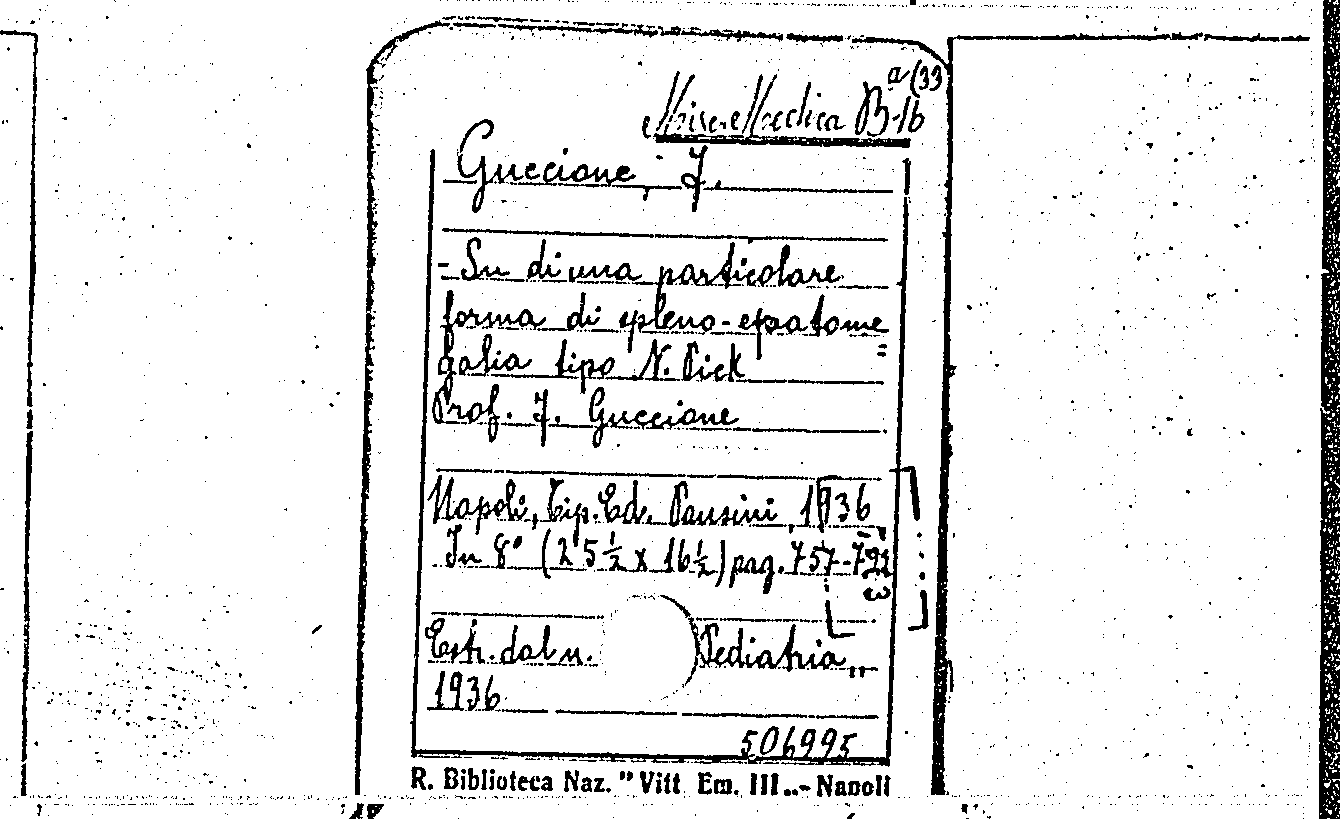 a (33
Misc. Medica B-16
Guccione, J.
- Su di una particolare
forma di spleno-epatome=
galia tipo N. Pick
Prof. J. Guccione
Napoli, Tip. Ed. Pansini, 1936
In 8° (25½ x 16½) pag. 757-
Estr. dal n. Pediatria,,
1936
506995
R. Biblioteca Naz. "Vitt. Em. III„- Napoli